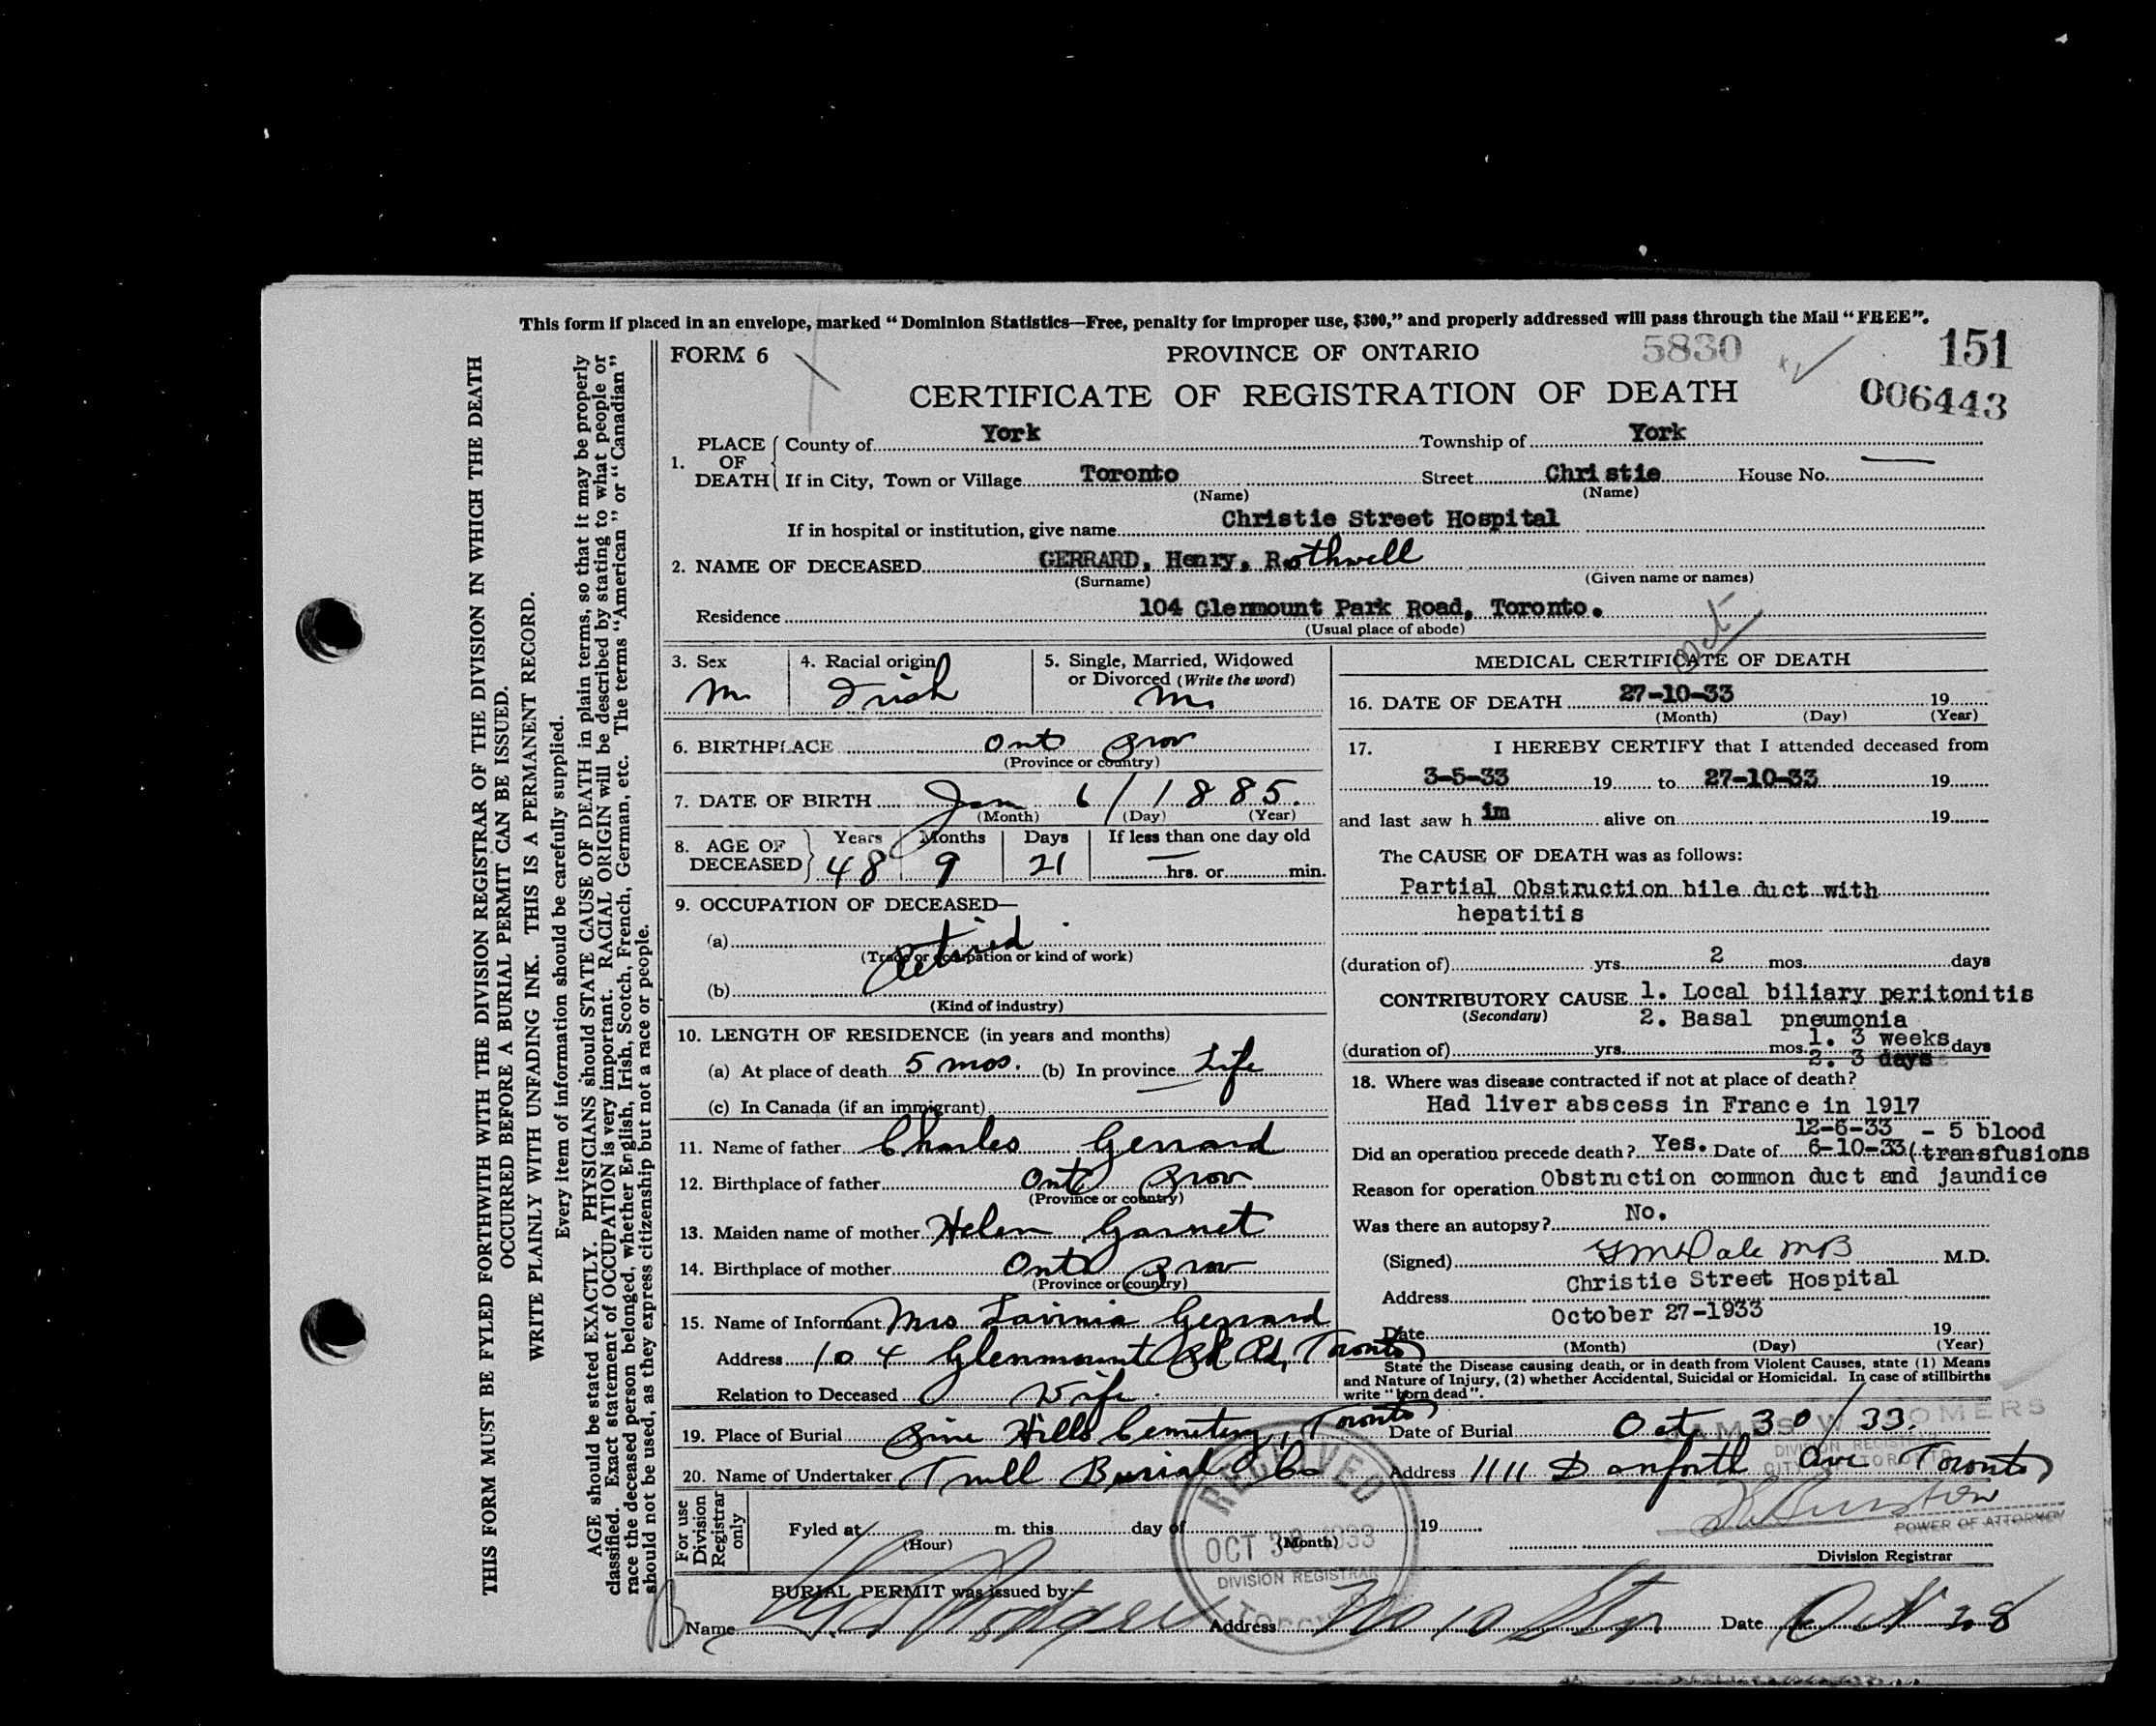 This form if placed in an envelope, marked “Dominion Statistics—Free, penalty for improper use, $300,” and properly addressed will pass through the Mail “FREE”.
FORM 6
PROVINCE OF ONTARIO
5830
151
CERTIFICATE OF REGISTRATION OF DEATH
006443
1. PLACE OF DEATH
County of York Township of York
If in City, Town or Village Toronto Street Christie House No. —
(Name) (Name)
If in hospital or institution, give name Christie Street Hospital
2. NAME OF DECEASED GERRARD, Henry, Rothwell
(Surname) (Given name or names)
Residence 104 Glenmount Park Road, Toronto.
(Usual place of abode)
3. Sex M
4. Racial origin Irish
5. Single, Married, Widowed
or Divorced (Write the word)
M
6. BIRTHPLACE Ont Prov
(Province or country)
7. DATE OF BIRTH Jan 6/1885.
(Month) (Day) (Year)
8. AGE OF DECEASED
Years Months Days If less than one day old
48 9 21 hrs. or min.
9. OCCUPATION OF DECEASED—
(a) Retired
(Trade or occupation or kind of work)
(b)
(Kind of industry)
10. LENGTH OF RESIDENCE (in years and months)
(a) At place of death 5 mos. (b) In province Life
(c) In Canada (if an immigrant)
11. Name of father Charles Gerrard
12. Birthplace of father Ont Prov
(Province or country)
13. Maiden name of mother Helen Garnet
14. Birthplace of mother Ont Prov
(Province or country)
15. Name of Informant Mrs Lavinia Gerrard
Address 104 Glenmount Pk Rd, Toronto
Relation to Deceased Wife
Oct
MEDICAL CERTIFICATE OF DEATH
16. DATE OF DEATH 27-10-33 19
(Month) (Day) (Year)
17. I HEREBY CERTIFY that I attended deceased from
3-5-33 19 to 27-10-33 19
and last saw h im alive on 19
The CAUSE OF DEATH was as follows:
Partial Obstruction bile duct with
hepatitis
(duration of) yrs. 2 mos. days
CONTRIBUTORY CAUSE 1. Local biliary peritonitis
(Secondary) 2. Basal pneumonia
(duration of) yrs. mos. 1. 3 weeks days
2. 3 days
18. Where was disease contracted if not at place of death?
Had liver abscess in France in 1917
12-6-33 - 5 blood
Did an operation precede death? Yes. Date of 6-10-33 (transfusions
Reason for operation Obstruction common duct and jaundice
Was there an autopsy? No.
(Signed) Dale MB M.D.
Address Christie Street Hospital
October 27-1933
Date 19
(Month) (Day) (Year)
State the Disease causing death, or in death from Violent Causes, state (1) Means
and Nature of Injury, (2) whether Accidental, Suicidal or Homicidal. In case of stillbirths
write “born dead”.
19. Place of Burial Pine Hills Cemetery, Toronto Date of Burial Oct 30/33.
20. Name of Undertaker Trull Burial Co Address 1111 Danforth Ave Toronto
JAMES W. SOMERS
DIVISION REGISTRAR
CITY OF TORONTO
POWER OF ATTORNEY
For use Division Registrar only
Fyled at m. this day of 19
(Hour) (Month)
Division Registrar
RECEIVED
OCT 30 1933
DIVISION REGISTRAR
TORONTO
BURIAL PERMIT was issued by:—
Name Address No 10 Stn Date Oct 28
THIS FORM MUST BE FYLED FORTHWITH WITH THE DIVISION REGISTRAR OF THE DIVISION IN WHICH THE DEATH
OCCURRED BEFORE A BURIAL PERMIT CAN BE ISSUED.
WRITE PLAINLY WITH UNFADING INK. THIS IS A PERMANENT RECORD.
Every item of information should be carefully supplied.
AGE should be stated EXACTLY. PHYSICIANS should STATE CAUSE OF DEATH in plain terms, so that it may be properly
classified. Exact statement of OCCUPATION is very important. RACIAL ORIGIN will be described by stating to what people or
race the deceased person belonged, whether English, Irish, Scotch, French, German, etc. The terms “American” or “Canadian”
should not be used, as they express citizenship but not a race or people.